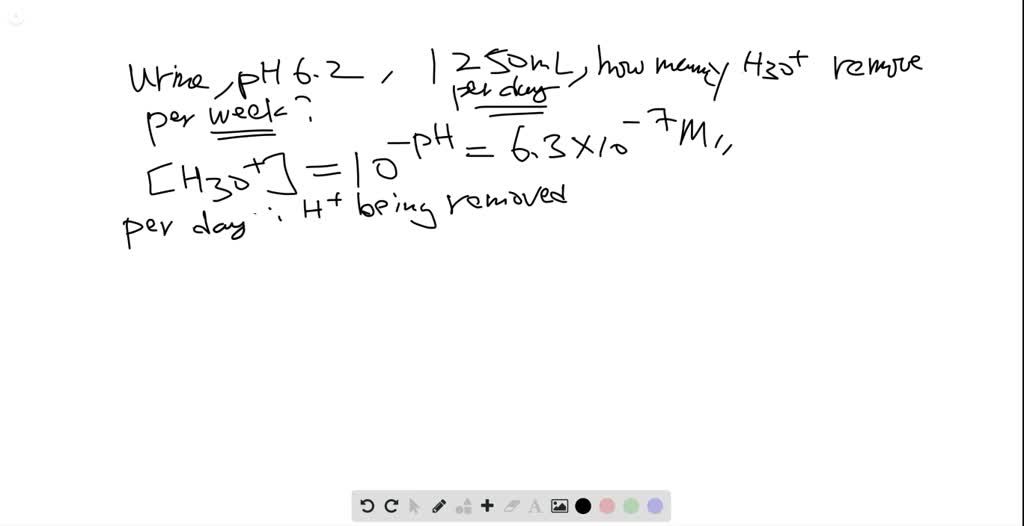 Urine, pH 6.2, 1250mL, how many H3O+ remove
per day
per week?
[H3O+] = 10^-pH = 6.3×10^-7 M,,
per day : H+ being removed
A